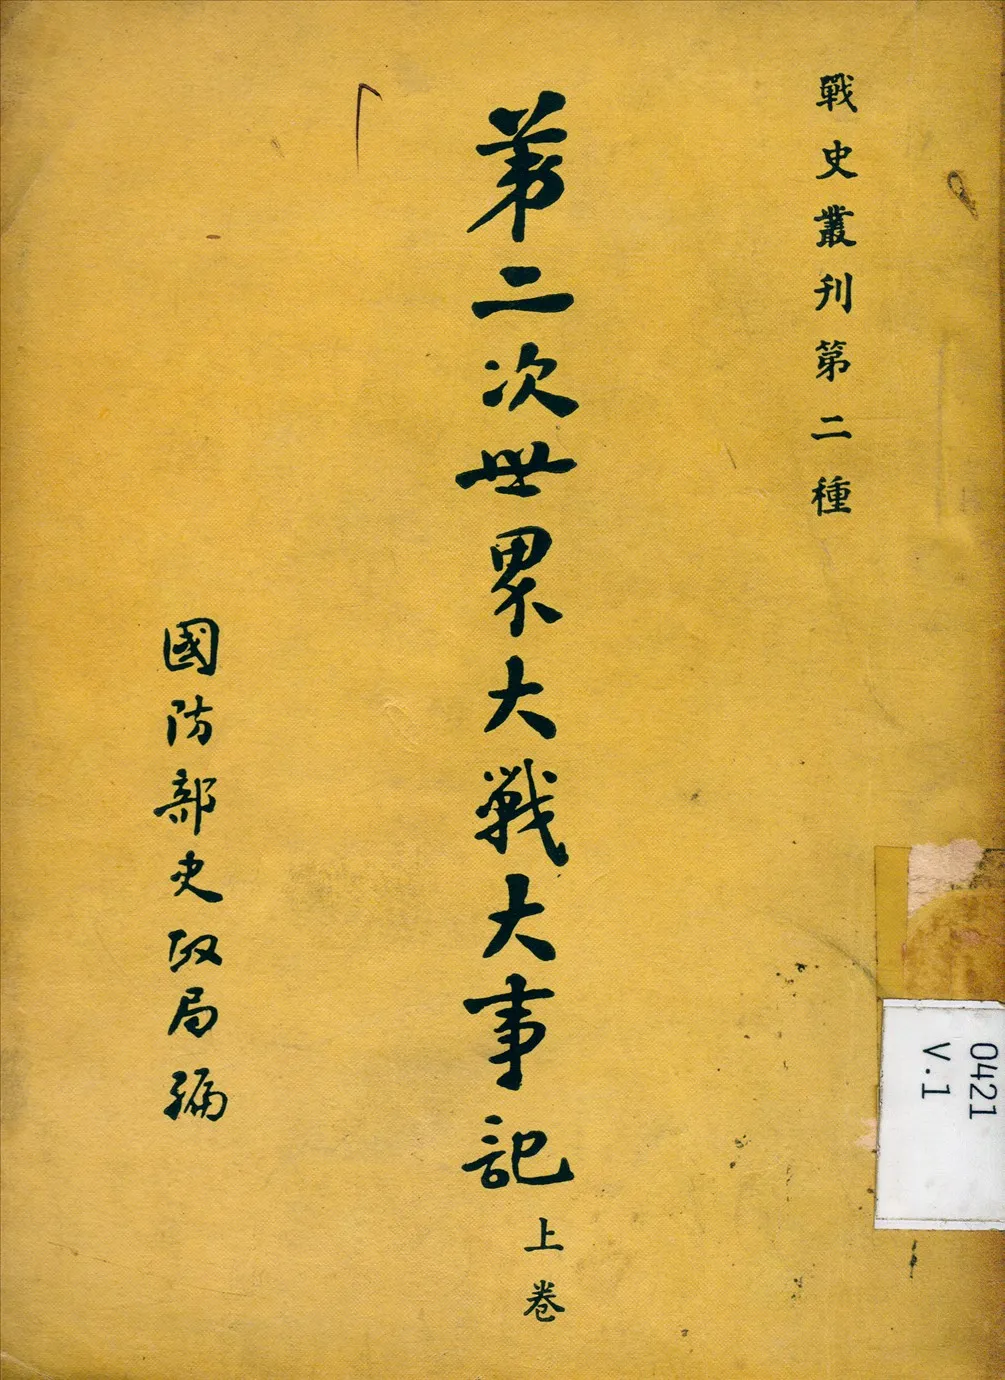 戰史叢刊第二種
第二次世界大戰大事記 上卷
國防部史政局編
0421
V.1